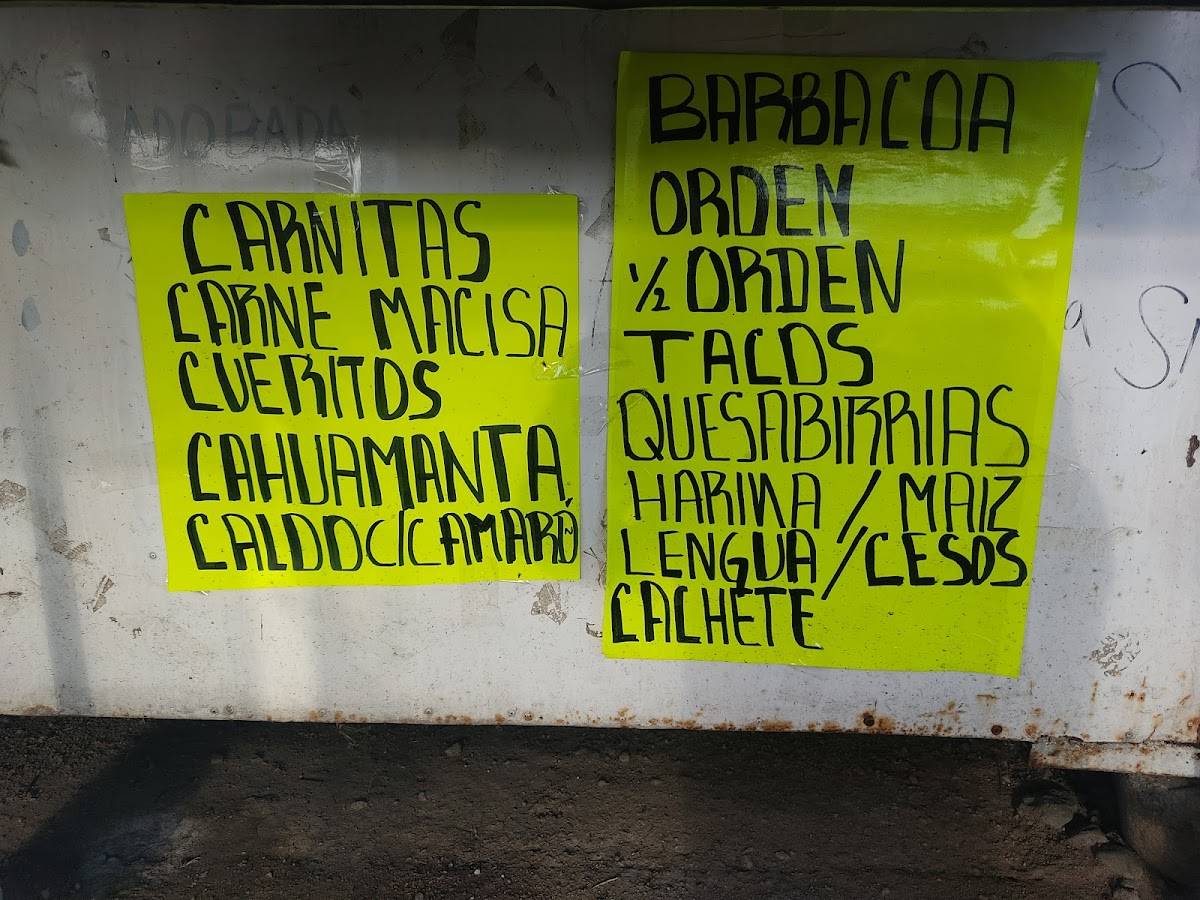 ADOBADA
CARNITAS
CARNE MACISA
CUERITOS
CAHUAMANTA
CALDO C/CAMARÓN
BARBACOA
ORDEN
1/2 ORDEN
TACOS
QUESABIRRIAS
HARINA / MAIZ
LENGUA / CESOS
CACHETE